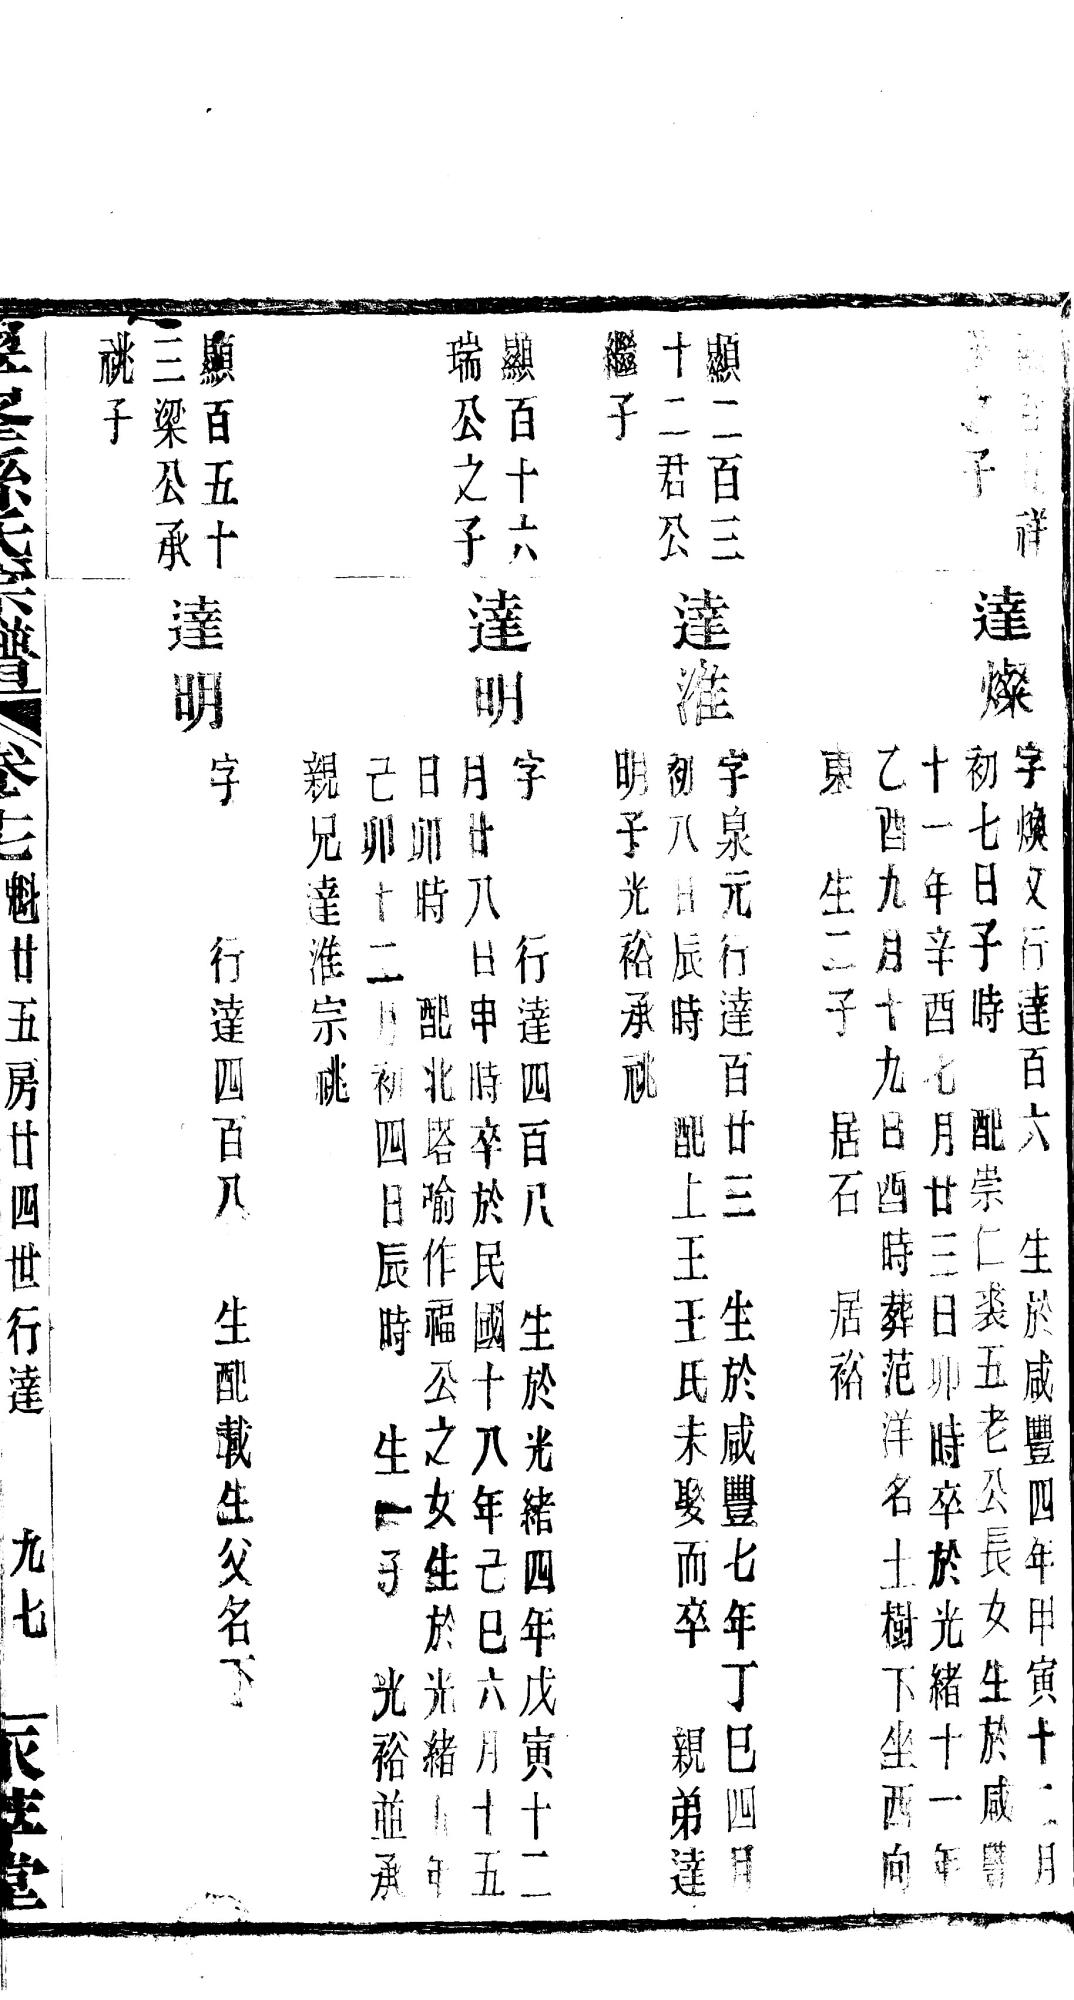 祥
之子
達燦
字煥文行達百六　生於咸豐四年甲寅十二月
初七日子時　配崇仁裘五老公長女生於咸豐
十一年辛酉七月廿三日卯時卒於光緒十一年
乙酉九月十九日酉時葬范洋名土樹下坐西向
東　生二子　居石　居裕
顯二百三
十二君公
繼子
達淮
字泉元行達百廿三　生於咸豐七年丁巳四月
初八日辰時　配上王王氏未娶而卒　親弟達
明子光裕承祧
顯百十六
瑞公之子
達明
字　行達四百八　生於光緒四年戊寅十二
月廿八日申時卒於民國十八年己巳六月十五
日卯時　配北塔喻作福公之女生於光緒年
己卯十二月初四日辰時　生一子　光裕並承
親兄達淮宗祧
顯百五十
三梁公承
祧子
達明
字　行達四百八　生配載生父名下
孫氏宗譜　卷十七　魁廿五房廿四世行達　九七　堂